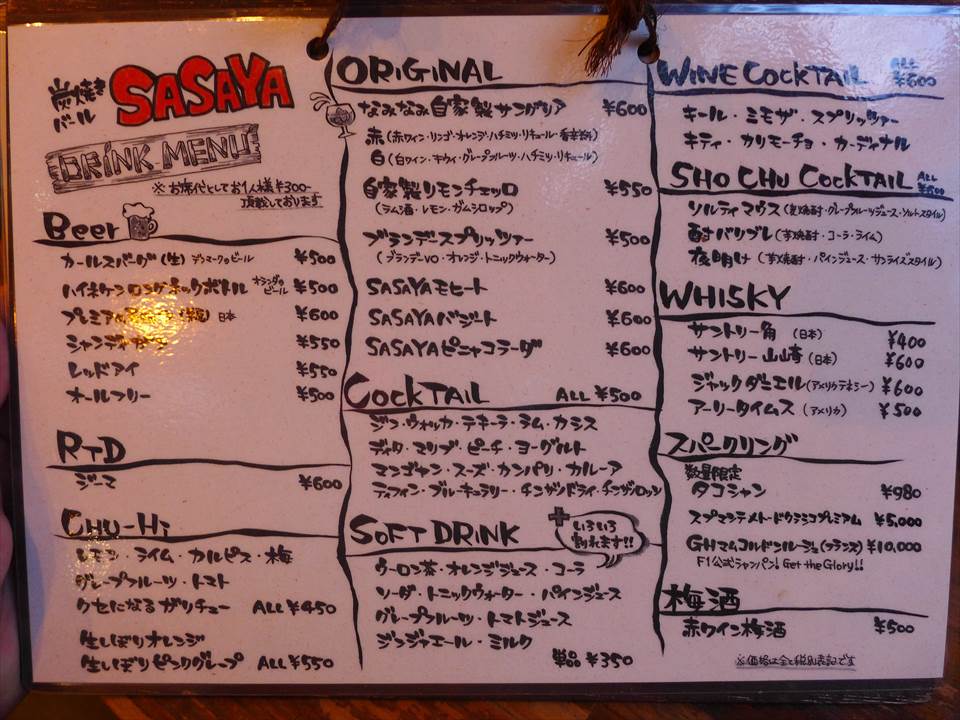 炭焼き
バール
SASAYA
DRINK MENU
※お席代としてお1人様¥300-
頂戴しております
Beer
カールスバーグ(生) デンマークのビール ¥500
ハイネケンロングネックボトル オランダのビール ¥500
¥600
¥550
レッドアイ ¥550
オールフリー ¥500
RTD
ジーマ ¥600
CHU-Hi
レモン・ライム・カルピス・梅
グレープフルーツ・トマト
クセになるガリチュー ALL ¥450
生しぼりオレンジ
生しぼりピンクグレープ ALL ¥550
ORiGiNAL
なみなみ自家製サングリア ¥600
赤(赤ワイン・リンゴ・オレンジ・ハチミツ・リキュール・香辛料)
白(白ワイン・キウイ・グレープフルーツ・ハチミツ・リキュール)
自家製リモンチェッロ ¥550
(ラム酒・レモン・ガムシロップ)
ブランデースプリッツァー ¥500
(ブランデーVO・オレンジ・トニックウォーター)
SASAYAモヒート ¥600
SASAYAバジート ¥600
SASAYAピニャコラーダ ¥600
CockTAiL ALL ¥500
ジン・ウォッカ・テキーラ・ラム・カシス
ディタ・マリブ・ピーチ・ヨーグルト
マンゴヤン・スーズ・カンパリ・カルーア
ティフィン・ブルーキュラソー・チンザノドライ・チンザノロッソ
SoFT DRiNK
+いろいろ
割れます!!
ウーロン茶・オレンジジュース・コーラ
ソーダ・トニックウォーター・パインジュース
グレープフルーツ・トマトジュース
ジンジャエール・ミルク
単品 ¥350
WiNE CockTAiL ALL ¥600
キール・ミモザ・スプリッツァー
キティ・カリモーチョ・カーディナル
SHO CHU CockTAiL ALL
ソルティマウス(麦焼酎・グレープフルーツジュース・ソルトスタイル)
酎バリブレ(芋焼酎・コーラ・ライム)
夜明け(芋焼酎・パインジュース・サンライズスタイル)
WHiSKY
サントリー角 (日本) ¥400
サントリー山崎 (日本) ¥600
ジャックダニエル(アメリカテネシー) ¥600
アーリータイムス (アメリカ) ¥500
スパークリング
数量限定
タコシャン ¥980
スプマンテメトードクラシコプレミアム ¥5,000
GHマムコルドンルージュ(フランス) ¥10,000
F1公式シャンパン! Get the Glory!!
梅酒
赤ワイン梅酒 ¥500
※価格は全て税別表記です